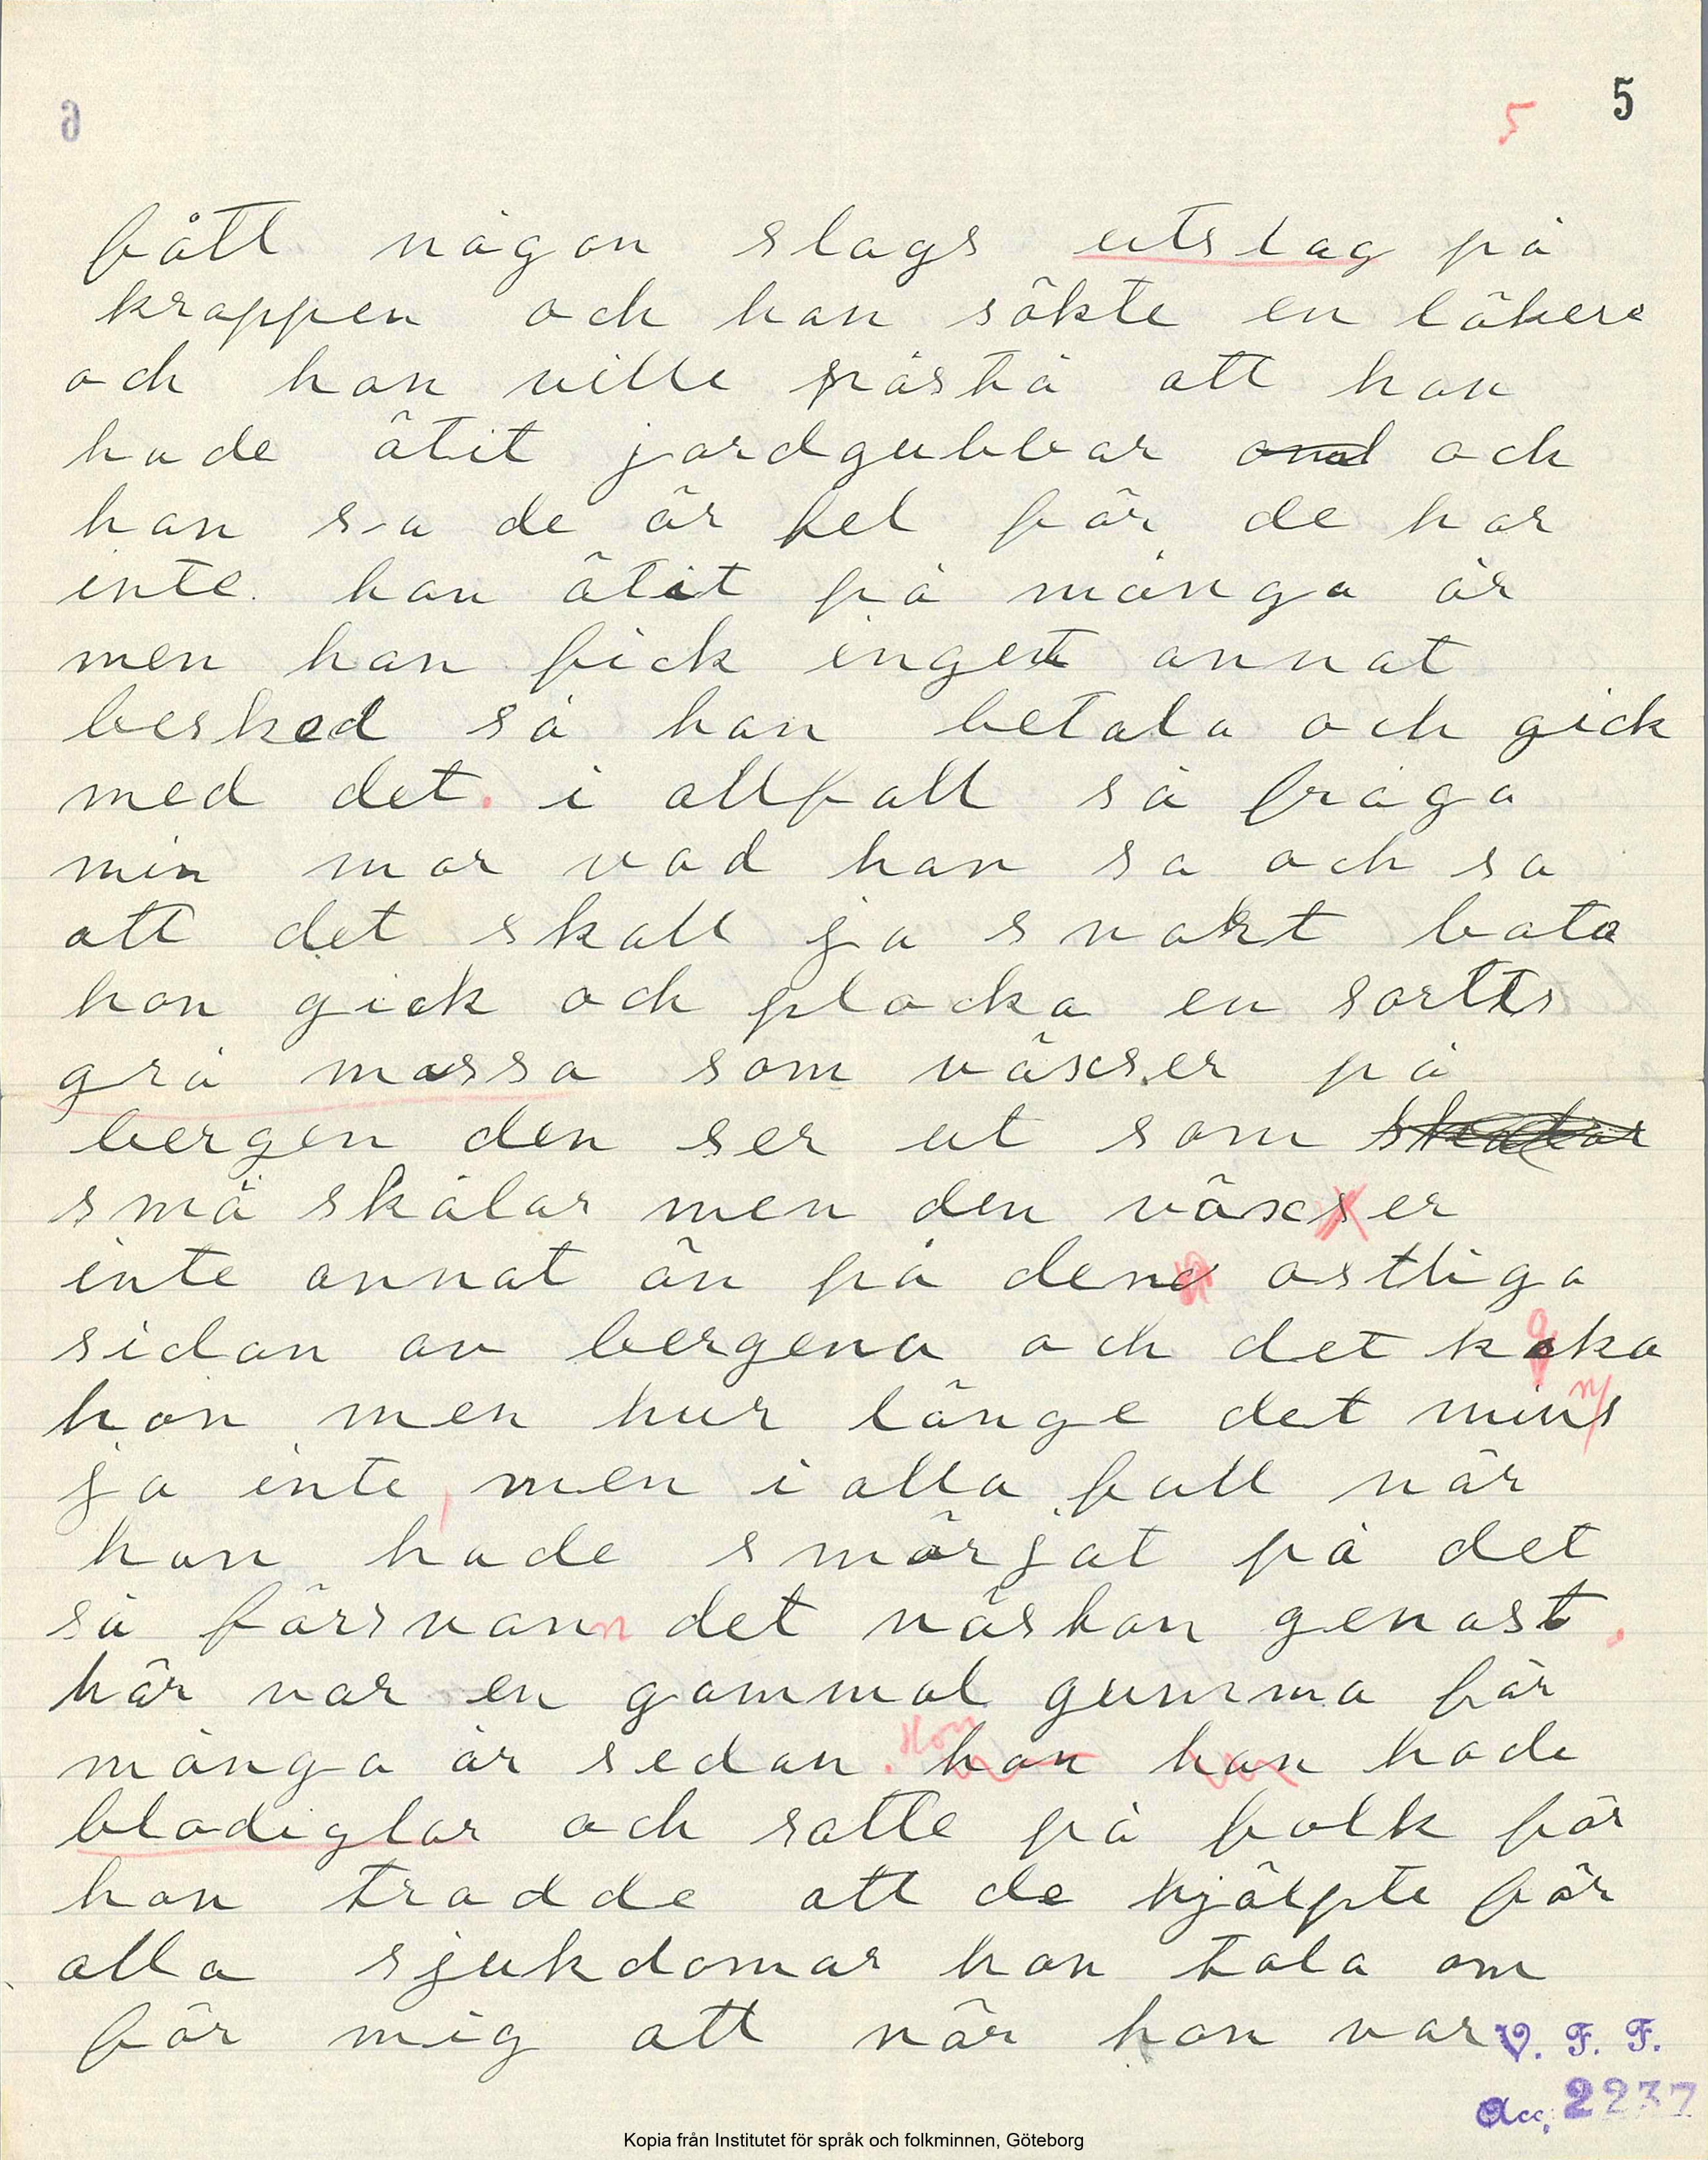 5 5
fått någon slags utslag på
kroppen och han sökte en läkere
och han ville påstå att han
hade ätit jordgubbar och
han sa de är fel för de har
inte han ätit på många år
men han fick inget annat
besked så han betala och gick
med det. i allfall så fråga
min mor vad han sa och sa
att det skall ja snart bota
hon gick och plocka en sorts
grå mossa som växser på
bergen den ser ut som
små skålar men den växer
inte annat än på den ostliga
sidan av bergena och det koka
hon men hur länge det minns
ja inte, men i alla fall när
han hade smörjat på det
så försvann det nästan genast.
här var en gammal gumma för
många år sedan. Hon hon hade
blodiglar och satte på folk för
hon trodde att de hjälpte för
alla sjukdomar hon tala om
för mig att när hon var
V. F. F.
Acc, 2237
Kopia från Institutet för språk och folkminnen, Göteborg